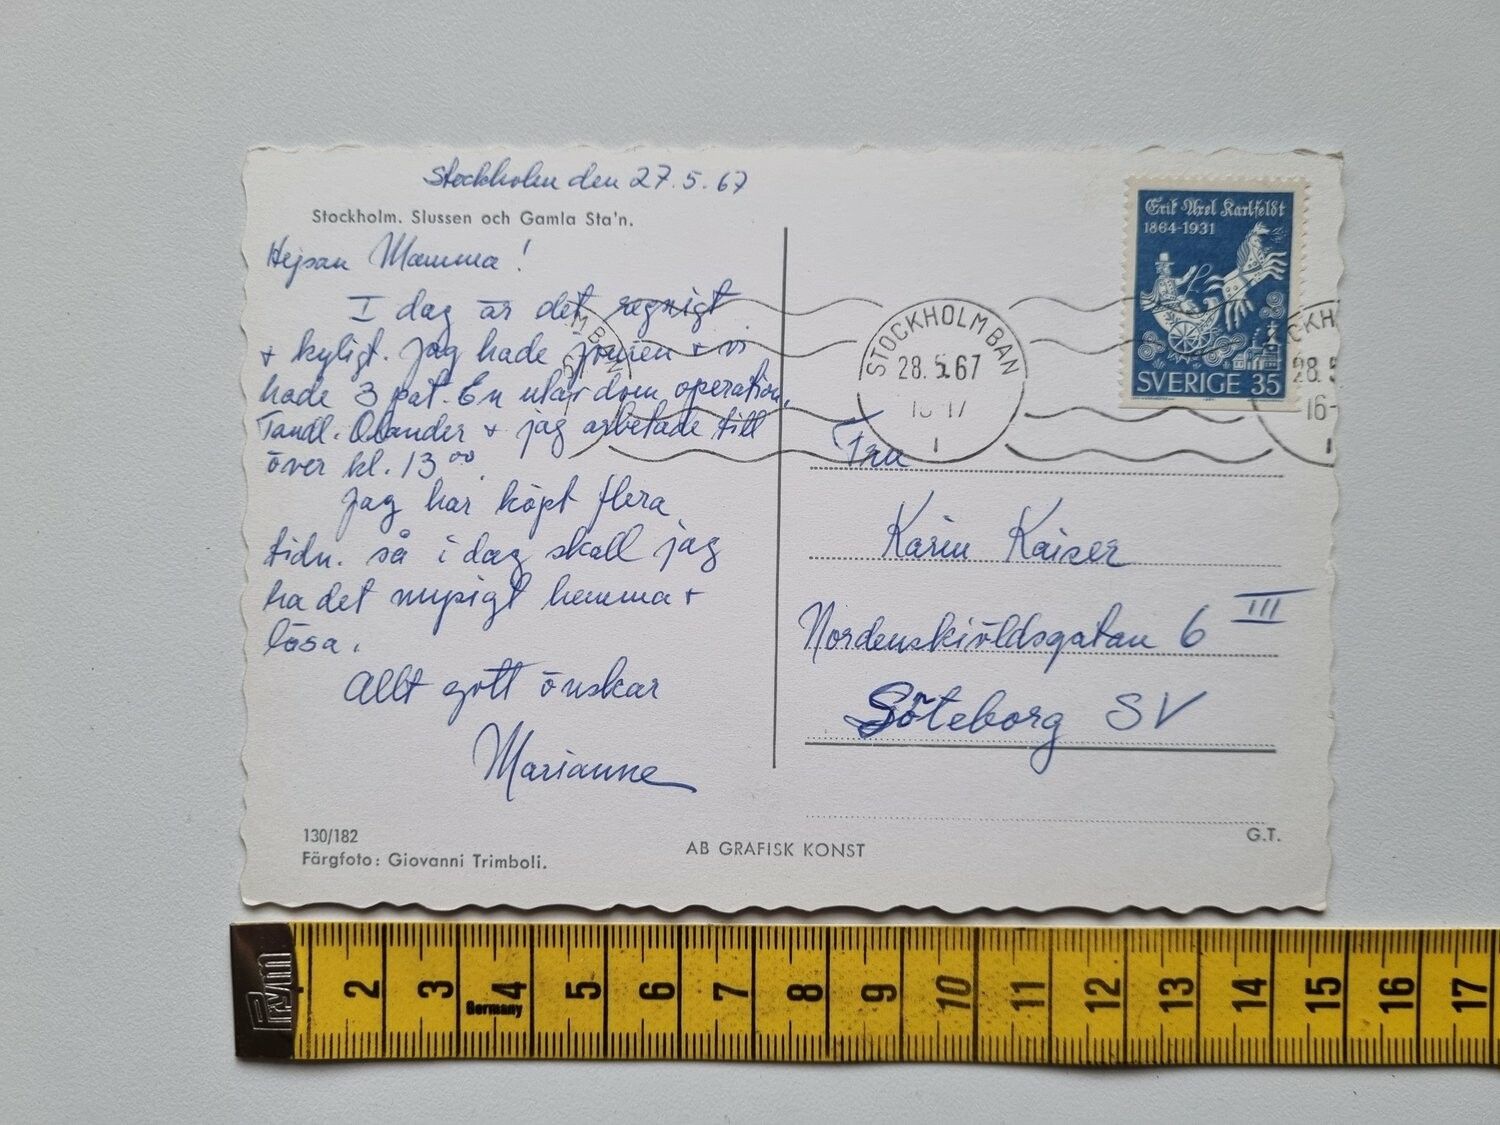 Stockholm den 27.5.67
Stockholm. Slussen och Gamla Sta'n.
Hejsan Mamma!
I dag är det regnigt
+ kyligt. Jag hade jouren + vi
hade 3 pat. En utav dom operation,
Tandl. Olander + jag arbetade till
över kl. 13⁰⁰.
Jag har köpt flera
tidn. så i dag skall jag
ha det mysigt hemma +
läsa.
Allt gott önskar
Marianne
130/182
Färgfoto: Giovanni Trimboli.
AB GRAFISK KONST
G.T.
Erik Axel Karlfeldt
1864-1931
SVERIGE 35
STOCKHOLM BAN
28.5.67
M BAN
67
CKH
28.5
16-
Fru
Karin Kaiser
Nordenskiöldsgatan 6 III
Göteborg SV
Prym
2 3 4 5 6 7 8 9 10 11 12 13 14 15 16 17
Germany